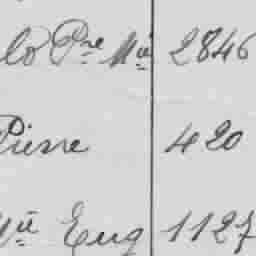 lo Pre Mie 2846
Pierre 420
Mie Eug 1127